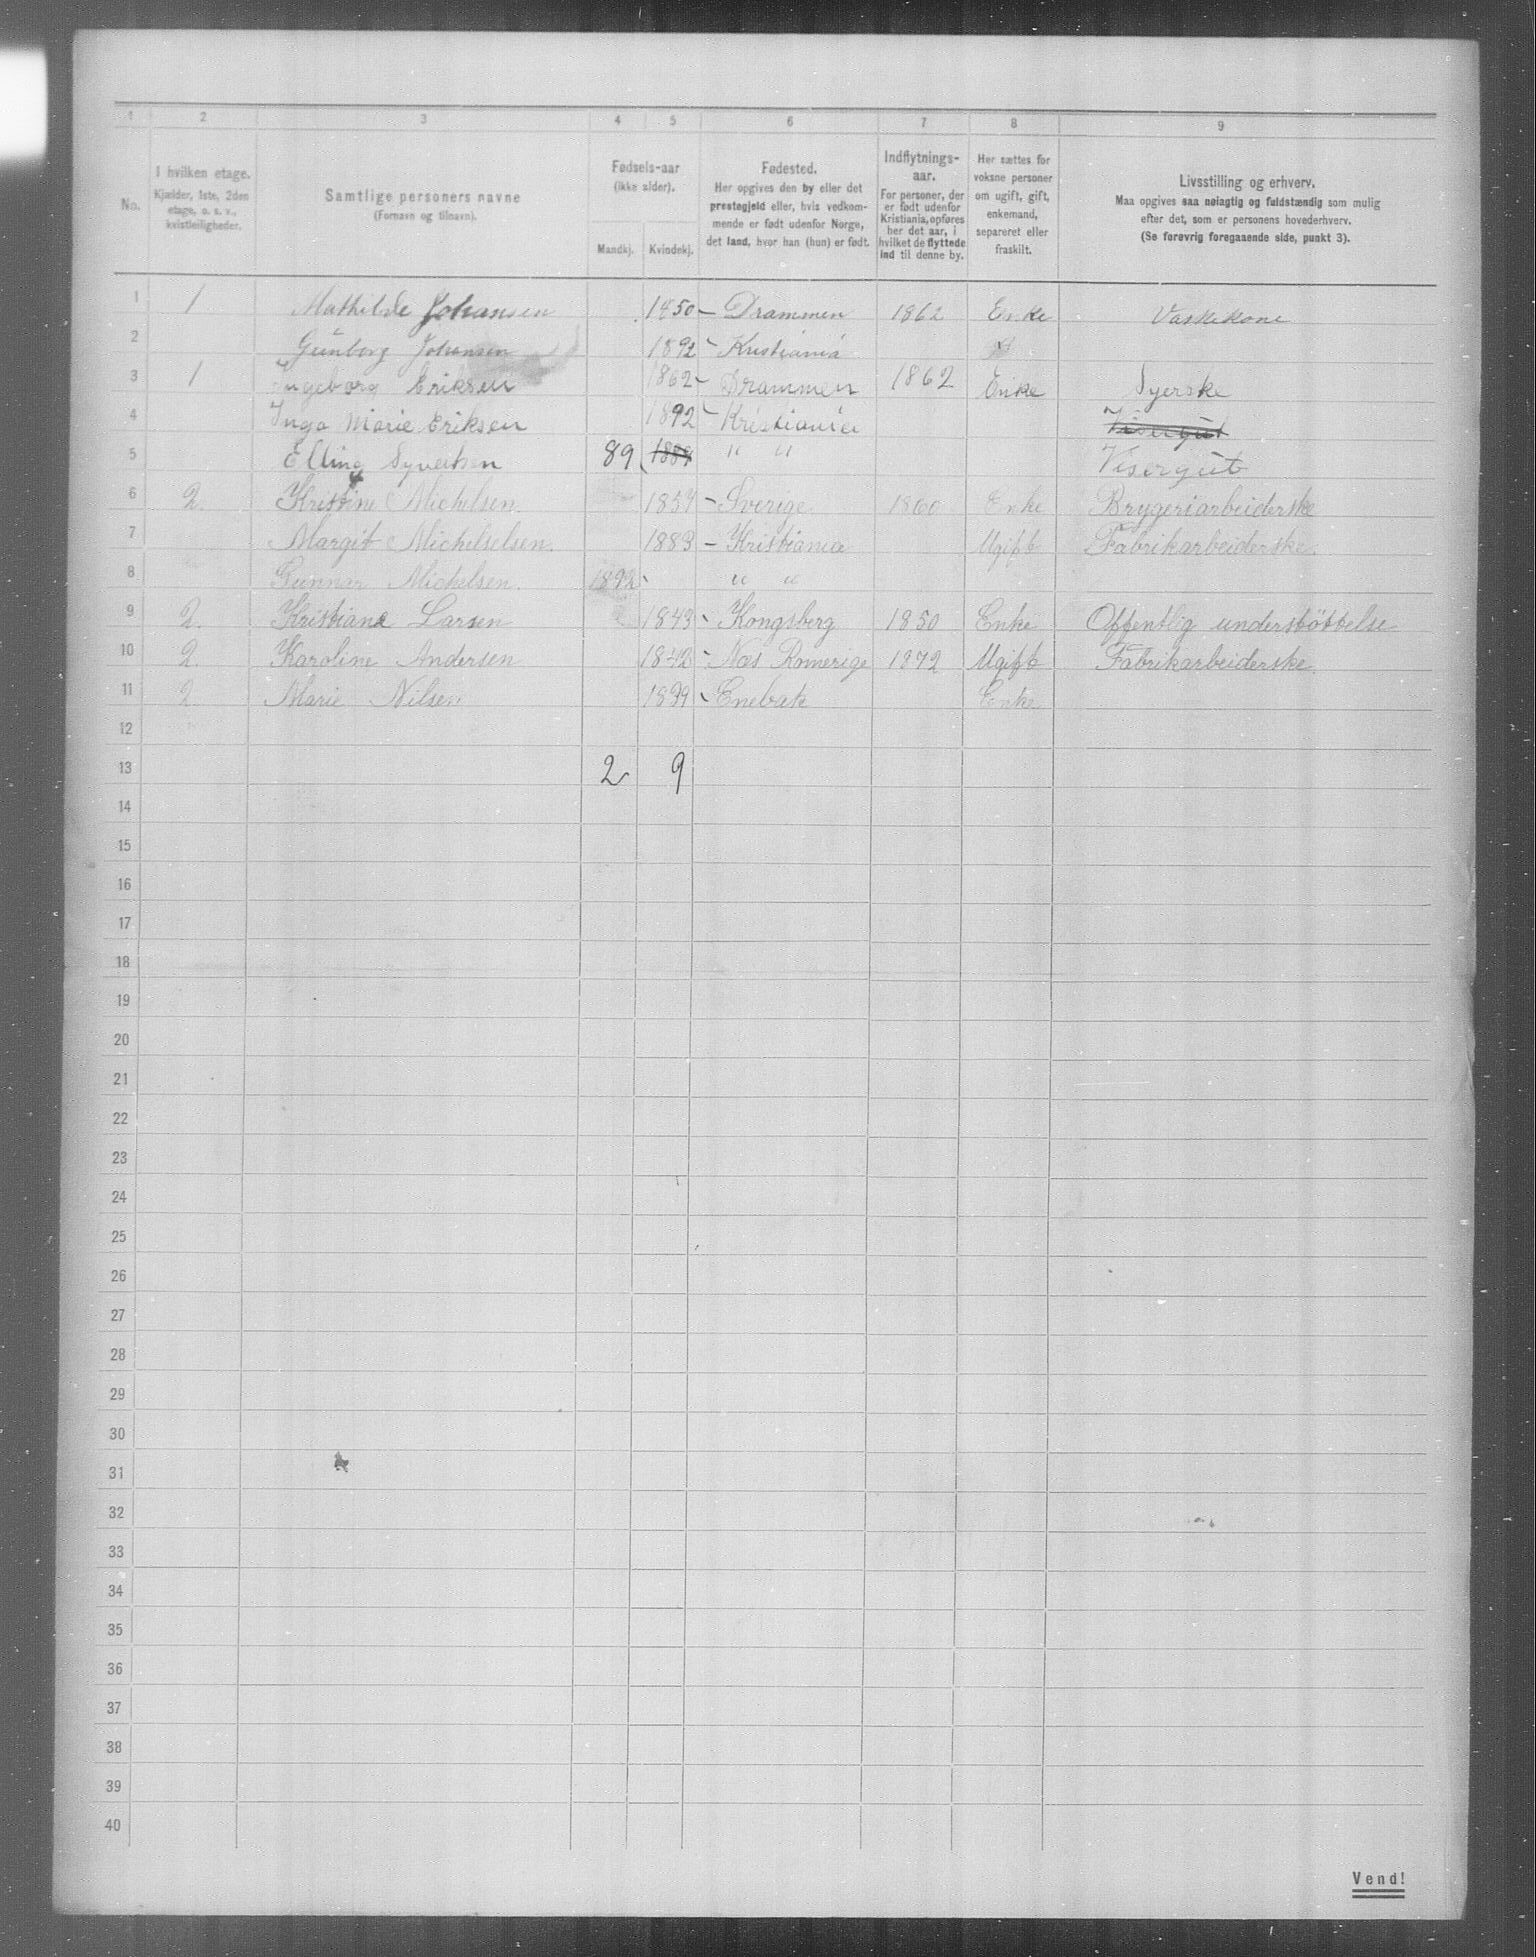 1 2 3 4 5 6 7 8 9
No.
I hvilken etage.
Kjælder, 1ste, 2den
etage, o. s. v.,
kvistleiligheder.
Samtlige personers navne
(Fornavn og tilnavn).
Fødsels-aar
(ikke alder).
Mandkj. Kvindekj.
Fødested.
Her opgives den by eller det
prestegjeld eller, hvis vedkom-
mende er født udenfor Norge,
det land, hvor han (hun) er født.
Indflytnings-
aar.
For personer, der
er født udenfor
Kristiania, opføres
her det aar, i
hvilket de flyttede
ind til denne by.
Her sættes for
voksne personer
om ugift, gift,
enkemand,
separeret eller
fraskilt.
Livsstilling og erhverv.
Maa opgives saa nøiagtig og fuldstændig som mulig
efter det, som er personens hovederhverv.
(Se forøvrig foregaaende side, punkt 3).
1 1 Mathilde Johansen 1850 – Drammen 1862 Enke Vaskekone
2 Gunborg Johansen 1892 – Kristiania
3 1 Ingeborg Eriksen 1862 – Drammen 1862 Enke Syerske
4 Inga Marie Eriksen 1892 – Kristiania Visergut
5 Elling Syvertsen 89 1889 " " Visergut
6 2. Kristine Michelsen. 1854 – Sverige 1860 Enke Brygeriarbeiderske
7 Margit Michelselsen. 1883 – Kristiania Ugift Fabrikarbeiderske.
8 Gunnar Michelsen. 1892 " "
9 2. Kristiana Larsen 1843 Kongsberg 1850 Enke Offentlig understøttelse
10 2. Karoline Andersen 1842 Næs Romerige 1872 Ugift Fabrikarbeiderske.
11 2. Marie Nilsen Enebak Enke
12
13 2 9
14
15
16
17
18
19
20
21
22
23
24
25
26
27
28
29
30
31
32
33
34
35
36
37
38
39
40
Vend!